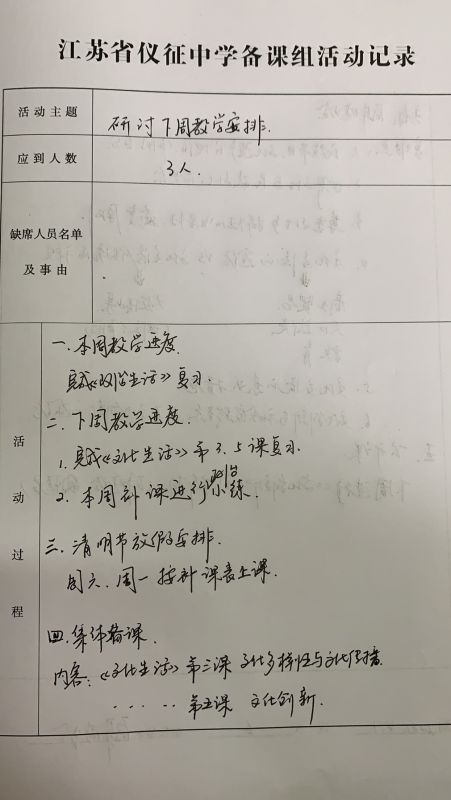 江苏省仪征中学备课组活动记录
活动主题
研讨下周教学安排.
应到人数
3人.
缺席人员名单
及事由
活动过程
一.本周教学进度
完成《政治生活》复习.
二.下周教学进度.
1.完成《文化生活》第3.5课复习.
2.本周补课进行政治小练.
三.清明节放假安排.
周六.周一按补课表上课.
四.集体备课.
内容:《文化生活》第三课 文化多样性与文化传播
......第五课 文化创新.